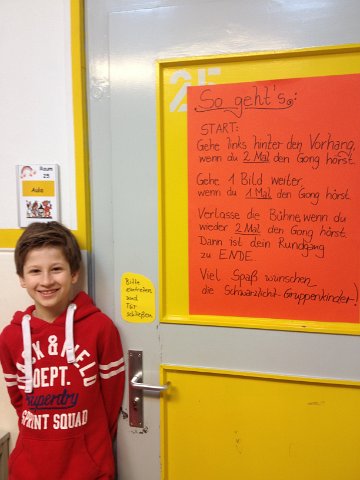 25
So geht's:
START:
Gehe links hinter den Vorhang,
wenn du 2 Mal den Gong hörst.
Gehe 1 Bild weiter,
wenn du 1 Mal den Gong hörst.
Verlasse die Bühne, wenn du
wieder 2 Mal den Gong hörst.
Dann ist dein Rundgang
zu ENDE.
Viel Spaß wünschen
die Schwarzlicht-Gruppenkinder!
Raum
25
Aula
Bitte
eintreten
und
Tür
schließen
TRACK & FIELD
DEPT.
Superdry
SPRINT SQUAD